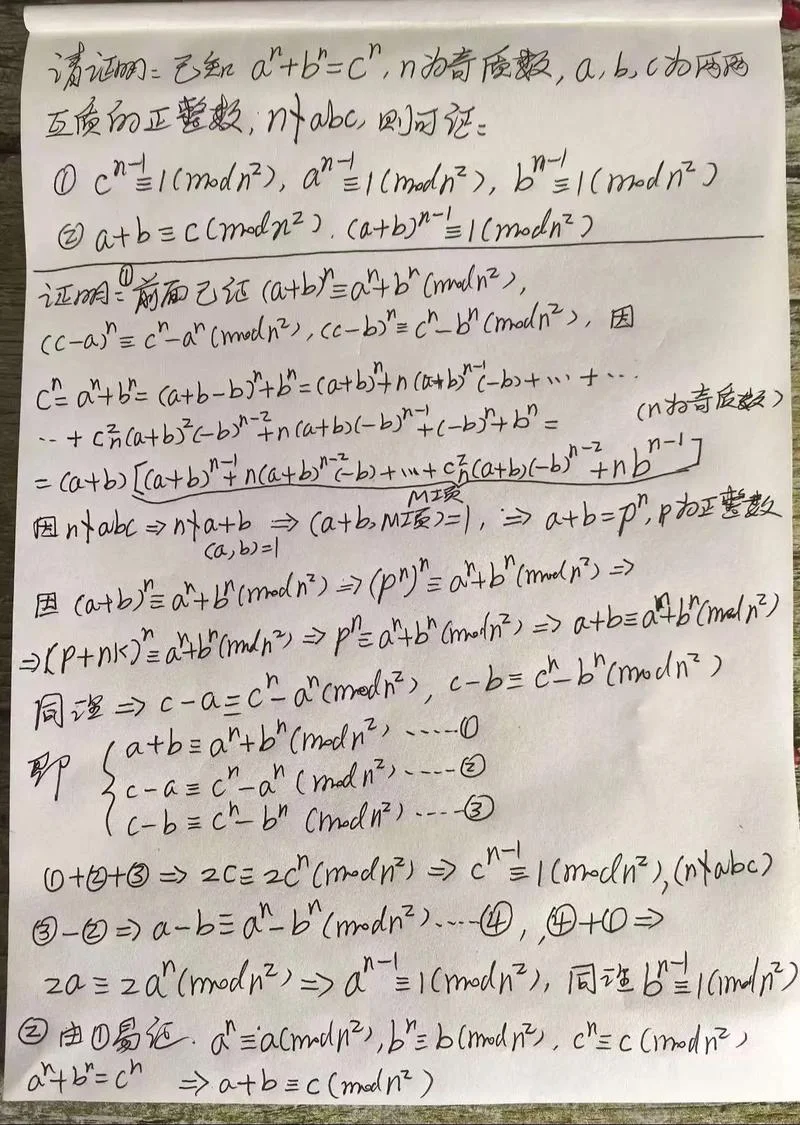 请证明：已知 aⁿ+bⁿ=cⁿ, n为奇质数, a, b, c为两两
互质的正整数, n∤abc, 则可证：
① cⁿ⁻¹≡1(mod n²), aⁿ⁻¹≡1(mod n²), bⁿ⁻¹≡1(mod n²)
② a+b≡c(mod n²). (a+b)ⁿ⁻¹≡1(mod n²)
证明：① 前面已证 (a+b)ⁿ≡aⁿ+bⁿ(mod n²),
(c-a)ⁿ≡cⁿ-aⁿ(mod n²), (c-b)ⁿ≡cⁿ-bⁿ(mod n²), 因
cⁿ=aⁿ+bⁿ=(a+b-b)ⁿ+bⁿ=(a+b)ⁿ+n(a+b)ⁿ⁻¹(-b)+…+…
…+C²ₙ(a+b)²(-b)ⁿ⁻²+n(a+b)(-b)ⁿ⁻¹+(-b)ⁿ+bⁿ= (n为奇质数)
=(a+b)[(a+b)ⁿ⁻¹+n(a+b)ⁿ⁻²(-b)+…+C²ₙ(a+b)(-b)ⁿ⁻²+nbⁿ⁻¹]
M项
因 n∤abc ⇒ n∤a+b ⇒ (a+b, M项)=1, ⇒ a+b=pⁿ, p为正整数
(a,b)=1
因 (a+b)ⁿ≡aⁿ+bⁿ(mod n²) ⇒ (pⁿ)ⁿ≡aⁿ+bⁿ(mod n²) ⇒
⇒ (p+nk)ⁿ≡aⁿ+bⁿ(mod n²) ⇒ pⁿ≡aⁿ+bⁿ(mod n²) ⇒ a+b≡aⁿ+bⁿ(mod n²)
同理 ⇒ c-a≡cⁿ-aⁿ(mod n²), c-b≡cⁿ-bⁿ(mod n²)
即 { a+b≡aⁿ+bⁿ(mod n²) ……①
c-a≡cⁿ-aⁿ(mod n²) ……②
c-b≡cⁿ-bⁿ(mod n²) ……③
①+②+③ ⇒ 2c≡2cⁿ(mod n²) ⇒ cⁿ⁻¹≡1(mod n²), (n∤abc)
③-② ⇒ a-b≡aⁿ-bⁿ(mod n²) ……④, ④+① ⇒
2a≡2aⁿ(mod n²) ⇒ aⁿ⁻¹≡1(mod n²), 同理 bⁿ⁻¹≡1(mod n²)
② 由①易证. aⁿ≡a(mod n²), bⁿ≡b(mod n²), cⁿ≡c(mod n²)
aⁿ+bⁿ=cⁿ ⇒ a+b≡c(mod n²)